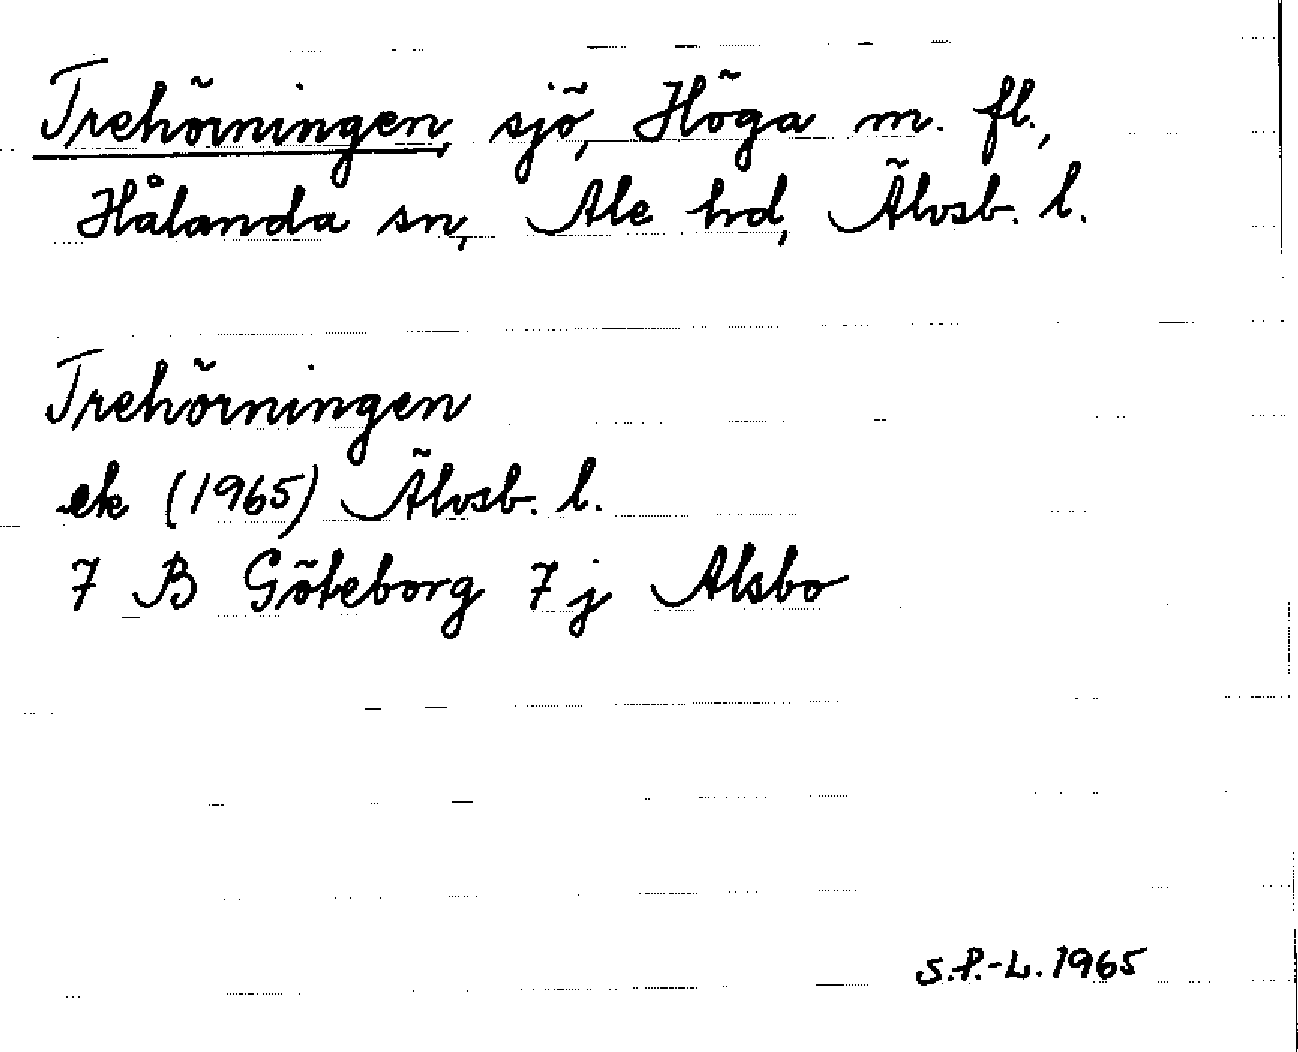 Trehörningen, sjö, Höga m. fl.,
Hålanda sn, Ale hd, Älvsb. l.
Trehörningen
ek (1965) Älvsb. l.
7 B Göteborg 7 j Alsbo
S.P.-L. 1965